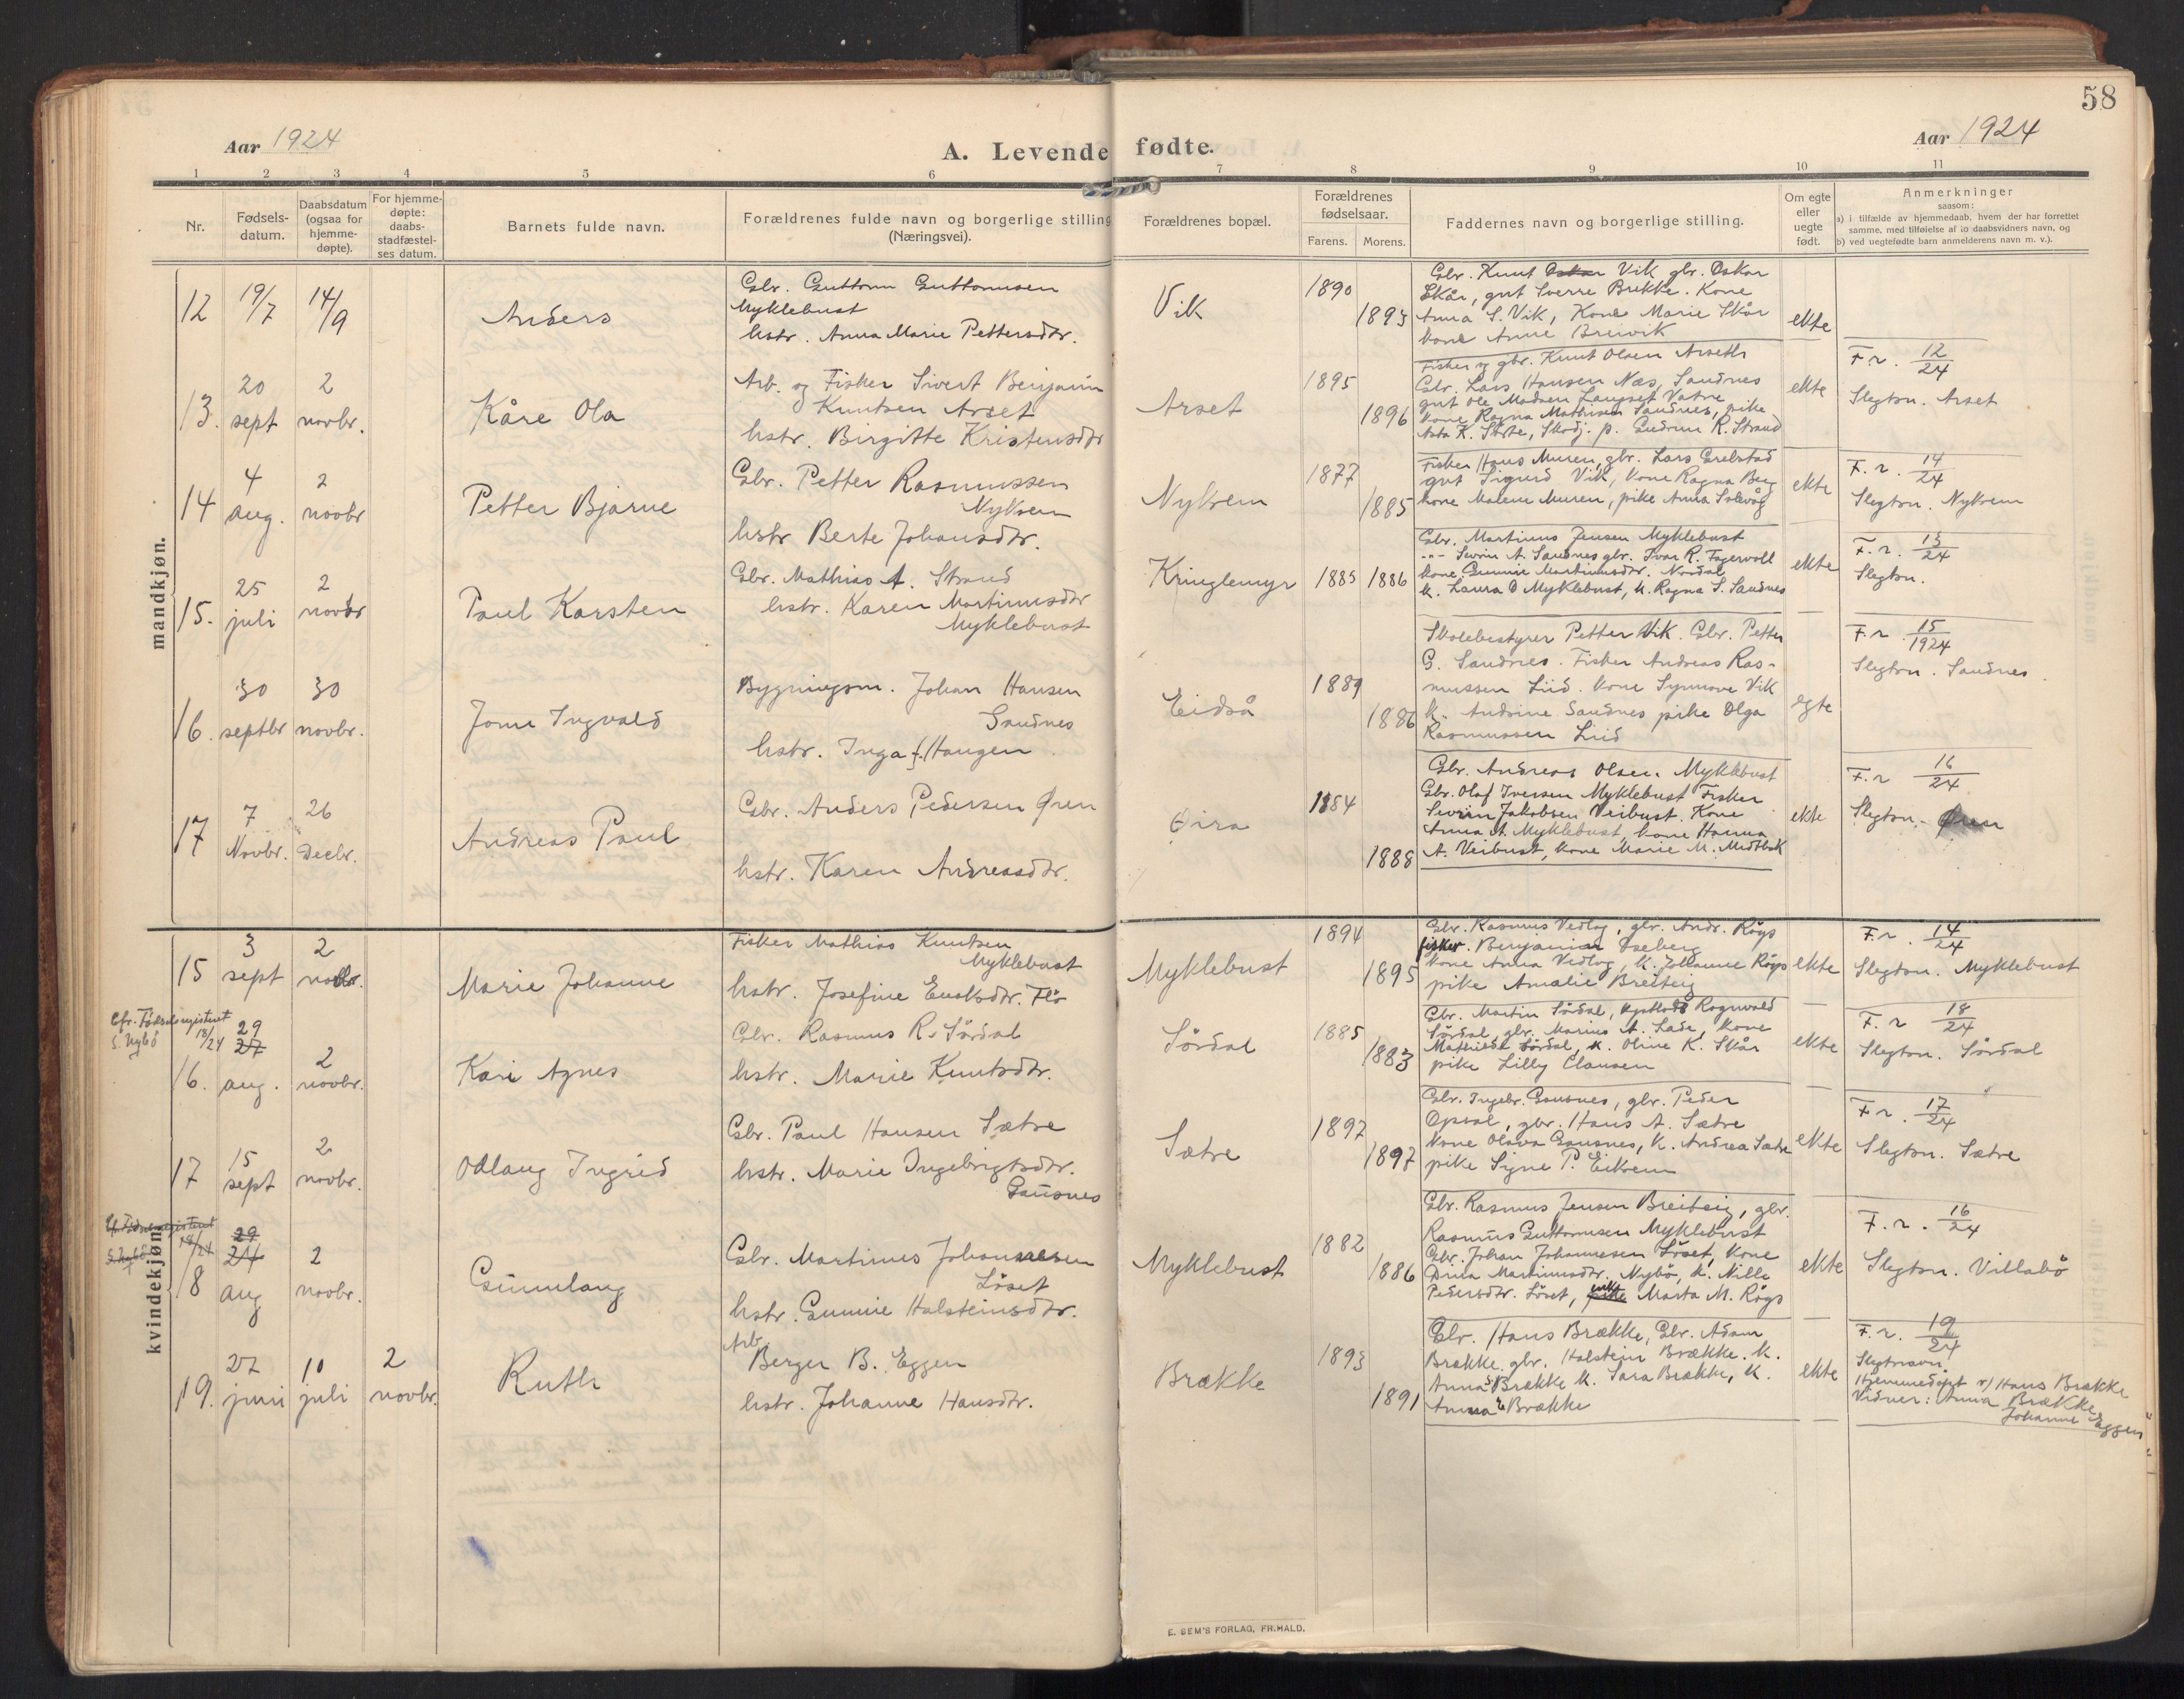 58
Aar 1924
A. Levende fødte.
Aar 1924
1 2 3 4 5 6 7 8 9 10 11
Nr.
Fødsels-
datum.
Daabsdatum
(ogsaa for
hjemme-
døpte).
For hjemme-
døpte:
daabs-
stadfæstel-
ses datum.
Barnets fulde navn.
Forældrenes fulde navn og borgerlige stilling
(Næringsvei).
Forældrenes bopæl.
Forældrenes
fødselsaar.
Farens. Morens.
Faddernes navn og borgerlige stilling.
Om egte
eller
uegte
født.
Anmerkninger
saasom:
a) i tilfælde av hjemmedaab, hvem der har forrettet
samme, med tilføielse af to daabsvidners navn, og
b) ved uegtefødte barn anmelderens navn m. v.).
mandkjøn.
12 19/7 14/9
Anders
Gbr. Guttorm Guttormsen
Myklebust
hstr. Anna Marie Pettersdtr.
Vik
1890
1893
Gbr. Knut Oskar Vik gbr. Oskar
Skår, gut Sverre Brekke. Kone
Anna S. Vik, Kone Marie Skår
kone Anne Breivik
ekte
13. 20 sept 2 novbr.
Kåre Ola
Arb. og Fisker Sivert Benjamin
Knutsen Arset
hstr. Birgitte Kristensdtr
Arset
1895
1896
Fisker og gbr. Knut Olsen Arseth
Gbr. Lars Hansen Næs, Sandnes
gut Ole Madsen Langset Vatne
kone Ragna Mathisen Sandnes, pike
Asta K. Støte, Skodj. p. Gudrun R. Strand
ekte
F. r. 12/24
Slegtsn. Arset
14 4 aug. 2 novbr
Petter Bjarne
Gbr. Petter Rasmussen
Nykrem
hstr Berte Johansdtr.
Nykrem
1877
1885
Fisker Hans Muren, gbr. Lars Grebstad
gut Sigurd Vik, kone Ragna Berg
kone Malene Muren, pike Anna Solevåg
ekte
F. r. 14/24
Slegtsn. Nykrem
15. 25 juli 2 novbr
Paul Karsten
Gbr. Mathias A. Strand
hstr. Karen Martinusdtr
Myklebust
Kringlemyr
1885 1886
Gbr. Martinus Jensen Myklebust
-"- Sevrin A. Sandnes gbr. Ivar R. Fagervoll
kone Gunnie Martinusdtr. Nordal
k. Laura O Myklebust, k. Ragna S. Sandnes
ekte
F. r. 13/24
Slegtsn.
16. 30 septbr 30 novbr.
Jone Ingvald
Bygningsm. Johan Hansen
Sandnes
hstr. Inga J. Haugen
Eidså
1889
1886
Skolebestyrer Petter Vik. Gbr. Petter
G. Sandnes. Fisker Andreas Ras-
mussen Liid. kone Synnøve Vik
k. Andrine Sandnes pike Olga
Rasmussen Liid
egte
F. r. 15/1924
Slegtsn. Sandnes
17 7 Novbr. 26 Decbr.
Andreas Paul
Gbr. Anders Pedersen Øren
hstr. Karen Andreasdtr.
Øira
1884
1888
Gbr. Andreas Olsen Myklebust
Gbr. Olaf Iversen Myklebust Fisker
Sevrin Jakobsen Veibust. Kone
Anna A. Myklebust, kone Hanna
A. Veibust, kone Marie M. Midtbak
ekte
F. r 16/24
Slegtsn. Øren
kvindekjøn.
15 3 sept 2 novbr.
Marie Johanne
Fisker Mathias Knutsen
Myklebust
hstr. Josefine Enoksdtr. Flø
Myklebust
1894
1895
Gbr. Rasmus Vedlog, gbr. Andr. Røys
fisker. Benjamin Iseberg
kone Anna Vedlog, k. Johanne Røys
pike Amalie Breiteig
ekte
F. r. 14/24
Slegtsn. Myklebust
Cfr. Fødselsregistret
S. Nybö 18/24
16. 29 27 aug. 2 novbr.
Kari Agnes
Gbr. Rasmus R. Sördal
hstr. Marie Knutsdtr.
Sördal
1885
1883
Gbr. Martin Sördal, ungkar Ragnvald
Sördal, gbr. Marius A. Lade, kone
Mathilde Sördal, k. Oline K. Skår
pike Lilly Clausen
ekte
F. r 18/24
Slegtsn. Sördal
17 15 sept 2 novbr.
Odlaug Ingrid
Gbr. Paul Hansen Sætre
hstr. Marie Ingebrigtsdtr.
Gausnes
Sætre
1897
1897
Gbr. Ingebr. Gausnes, gbr. Peder
Opsal, gbr. Hans A. Sætre
kone Olava Gausnes, k. Andrea Sætre
pike Signe P. Eikrem
ekte
F. r. 17/24
Slegtsn. Sætre
Cfr. Fødselsregistret
S. Nybö 18/24
18 29 24 aug 2 novbr.
Gunnlaug
Gbr. Martinus Johannesen
Löset
hstr. Gunnie Halsteinsdtr.
Myklebust
1882
1886
Gbr. Rasmus Jensen Breiteig, gbr.
Rasmus Guttormsen Myklebust
Gbr. Johan Johannesen Löset, kone
Drua Martinusdtr. Nybö, k. Nille
Pedersdtr. Löset, pike enke Marta M. Røys
ekte
F. r. 16/24
Slegtsn. Villabö
19. 27 juni 10 juli 2 novbr.
Ruth
Arb.
Berger B. Eggen
hstr. Johanne Hansdtr.
Brække
1893
1891
Gbr. Hans Brække, Gbr. Adam
Brække. gbr. Halstein Brække. k.
Anna Brække k. Sara Brække, k.
Anna Brække
ekte
F. r. 19/24
Slegtnavn.
Hjemmedöpt v/ Hans Brække
Vidner: Anna Brække
Johanne Eggen
E. SEM'S FORLAG, FR.HALD.